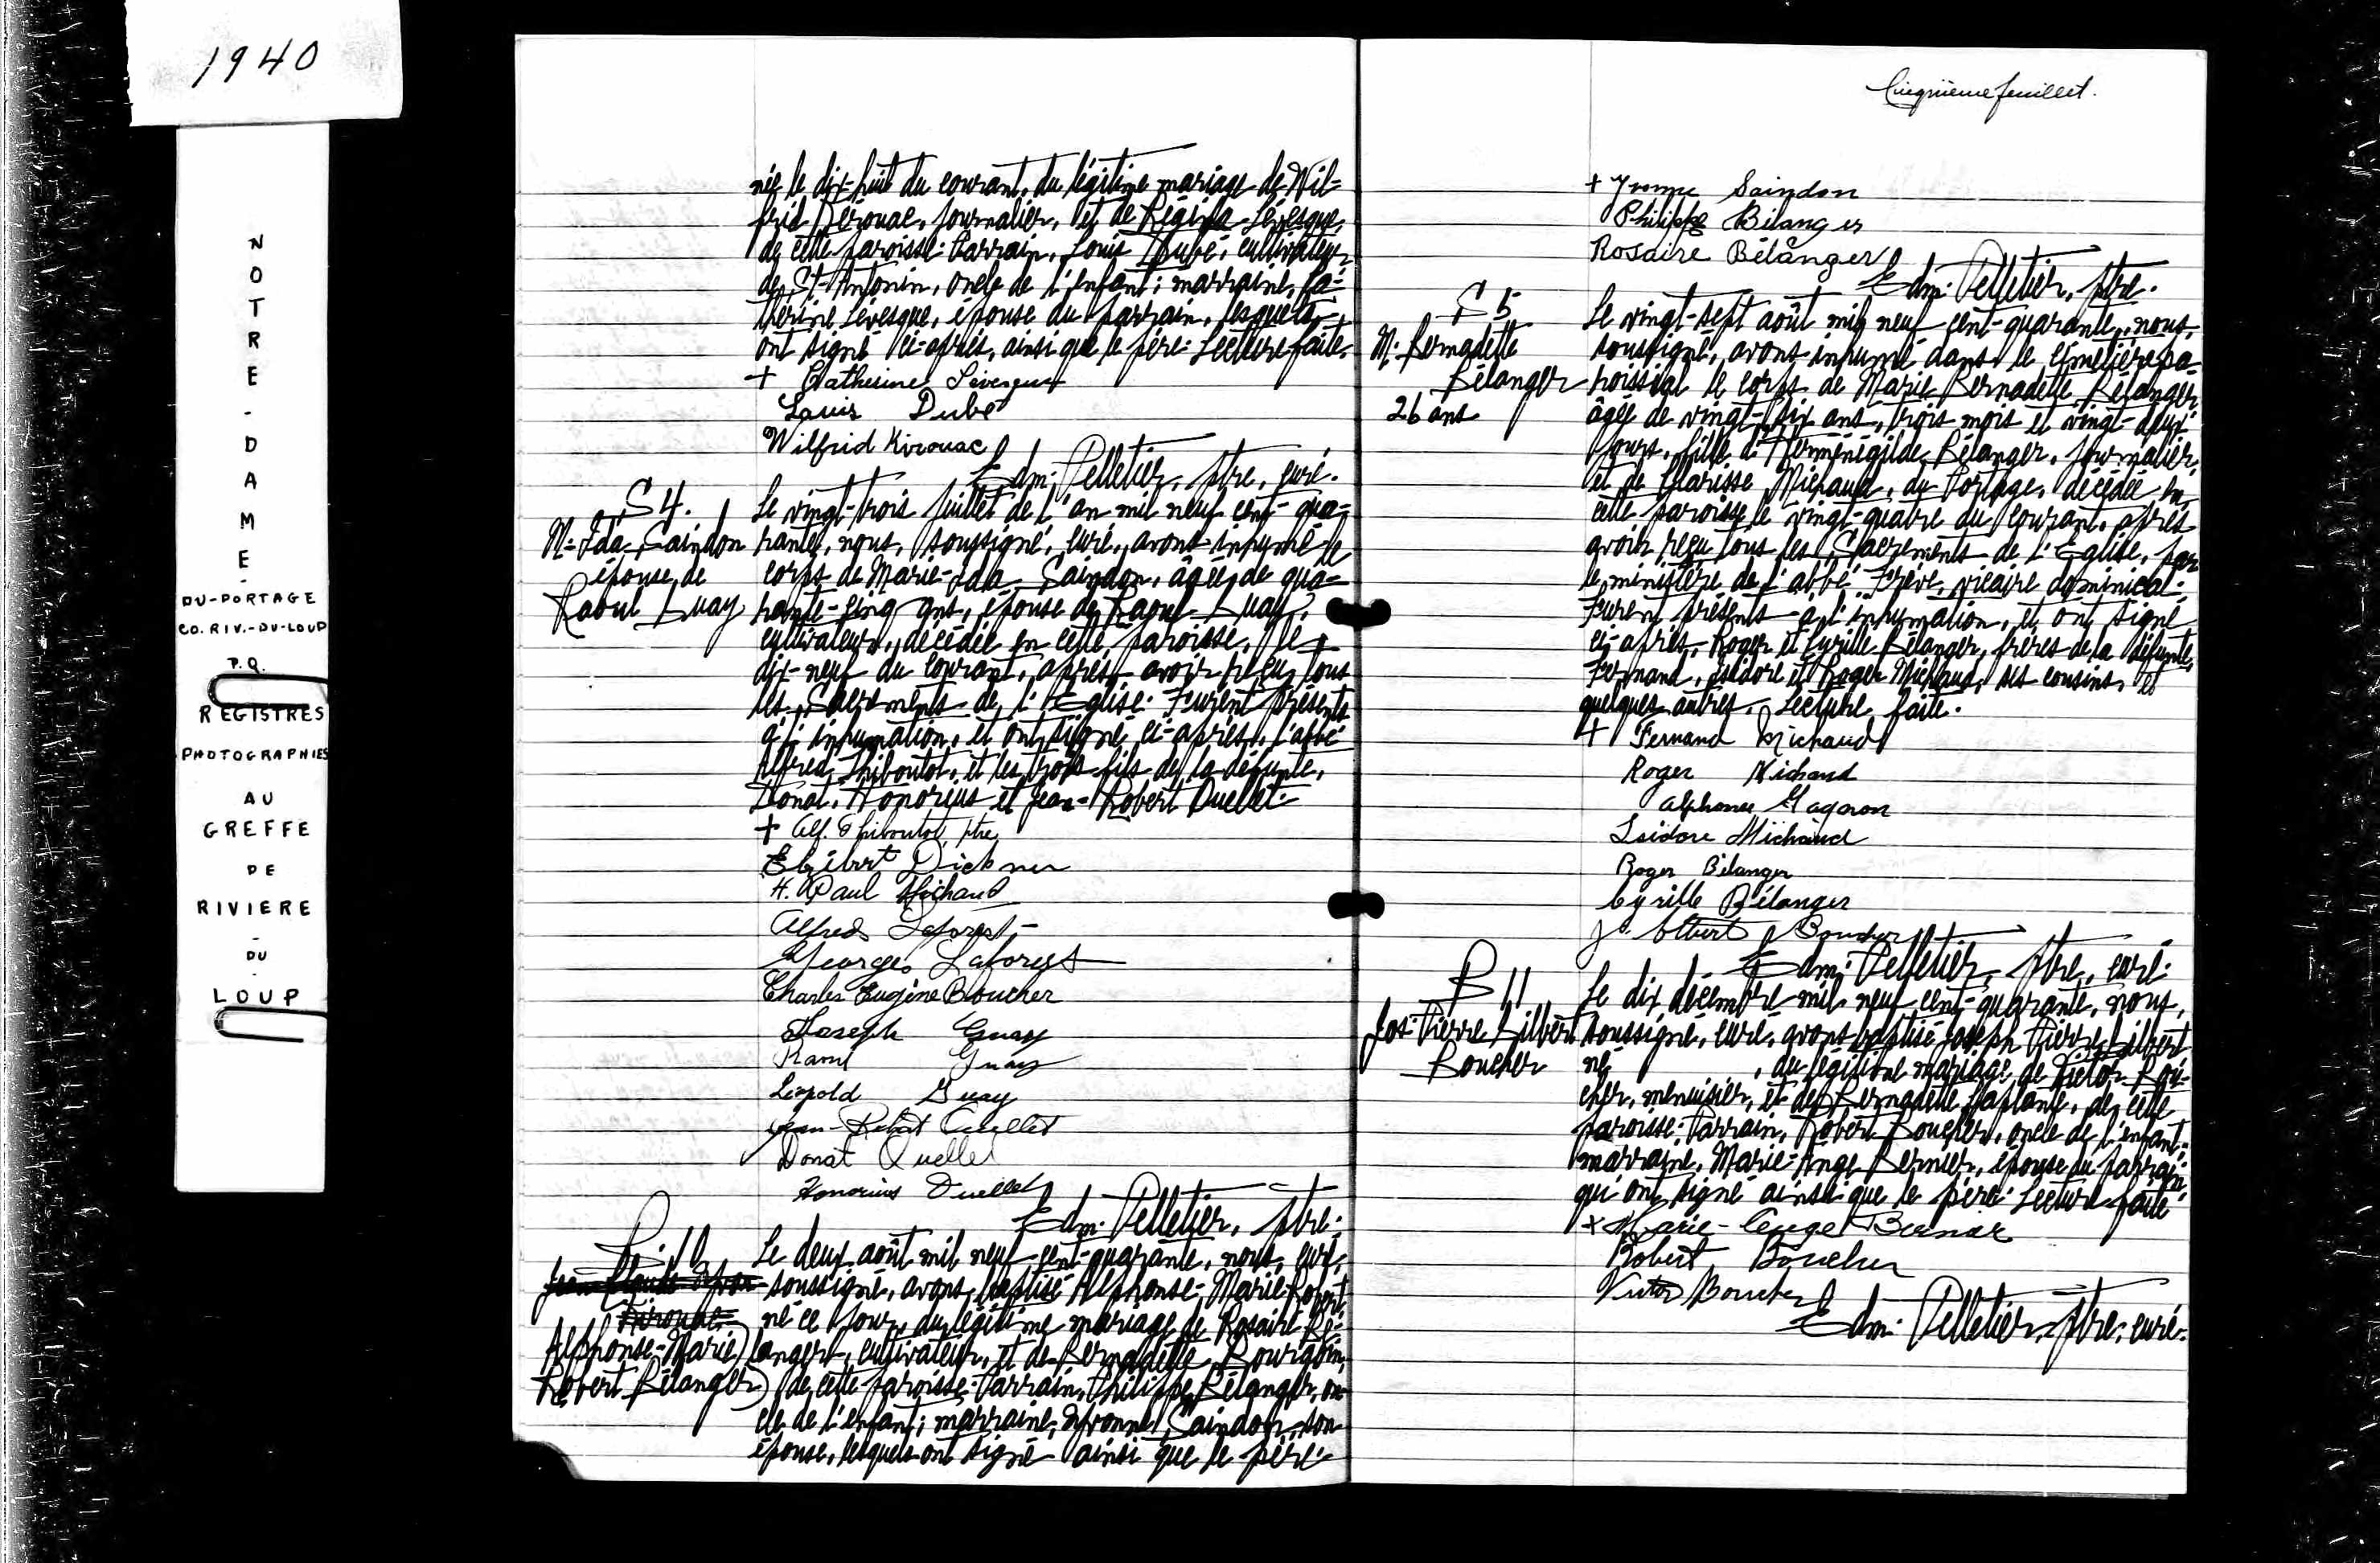 1940
NOTRE-DAME-
DU-PORTAGE
CO. RIV.-DU-LOUP
P.Q.
REGISTRES
PHOTOGRAPHIES
AU
GREFFE
DE
RIVIERE
-
DU
-
LOUP
née le dix-huit du courant, du légitime mariage de Wil=
frid Kérouac, journalier, et de Régina Lévesque,
de cette paroisse. Parrain, Louis Dubé, cultivateur
de St-Antonin, oncle de l'enfant; marraine, Ca=
therine Lévesque, épouse du parrain, lesquels
ont signé ci-après, ainsi que le père. Lecture faite.
+ Catherine Lévesque
Louis Dubé
Wilfrid Kirouac
Edm. Pelletier, ptre, curé.
S 4.
M. Ida Saindon
épouse de
Raoul Guay
Le vingt-trois juillet de l'an mil neuf cent-qua=
rante, nous, soussigné, curé, avons inhumé le
corps de Marie-Ida Saindon, âgée de qua=
rante-cinq ans, épouse de Raoul Guay,
cultivateur, décédée en cette paroisse, le
dix-neuf du courant, après avoir reçu tous
les Sacrements de l'Eglise. Furent présents
à l'inhumation, et ont signé ci-après, l'abbé
Alfred Thiboutot, et les trois fils de la défunte,
Donat, Honorius et Jean-Robert Ouellet.
+ Alf. Thiboutot, ptre
Dickner
H. Paul Michaud
Alfred Laforest
Georges Laforest
Charles Eugène Boucher
Joseph Guay
Raoul Guay
Léopold Guay
Jean-Robert Ouellet
Donat Ouellet
Honorius Ouellet
Edm. Pelletier, ptre.
B. 10
Kirouac
Alphonse-Marie)
Robert Bélanger)
Le deux août mil neuf cent-quarante, nous, curé,
soussigné, avons baptisé Alphonse-Marie Robert,
né ce jour, du légitime mariage de Rosaire Bé=
langer, cultivateur, et de Bernadette Bourgoin,
de cette paroisse. Parrain, Philippe Bélanger, on=
cle de l'enfant; marraine, Yvonne Saindon, son
épouse, lesquels ont signé ainsi que le père.
Cinquième feuillet.
+ Yvonne Saindon
Philippe Bélanger
Rosaire Bélanger
Edm. Pelletier, ptre.
S 5
M. Bernadette
Bélanger
26 ans
Le vingt-sept août mil neuf cent-quarante, nous,
soussigné, avons inhumé dans le cimetière pa=
roissial le corps de Marie Bernadette Bélanger
âgée de vingt-six ans, trois mois et vingt-deux
jours, fille d'Herménégilde Bélanger, journalier,
et de Clarisse Michaud, du Portage, décédée en
cette paroisse le vingt-quatre du courant, après
avoir reçu tous les Sacrements de l'Eglise, par
le ministère de l'abbé Frève, vicaire dominical.
Furent présents à l'inhumation, et ont signé
ci-après, Roger et Cyrille Bélanger, frères de la défunte,
Fernand, Isidore et Roger Michaud, ses cousins, et
quelques autres. Lecture faite.
+ Fernand Michaud
Roger Michaud
Alphonse Gagnon
Isidore Michaud
Roger Bélanger
Cyrille Bélanger
J. Boucher
Edm. Pelletier, ptre, curé.
B 11
Jos. Pierre Gilbert
Boucher
Le dix décembre mil neuf cent-quarante, nous,
soussigné, curé, avons baptisé Joseph Pierre Gilbert,
né , du légitime mariage de Victor Bou=
cher, menuisier, et de Bernadette Laplante, de cette
paroisse. Parrain, Robert Boucher, oncle de l'enfant;
marraine, Marie-Ange Bernier, épouse du parrain,
qui ont signé ainsi que le père. Lecture faite
+ Marie-Ange Bernier
Robert Boucher
Victor Boucher
Edm. Pelletier, ptre, curé.